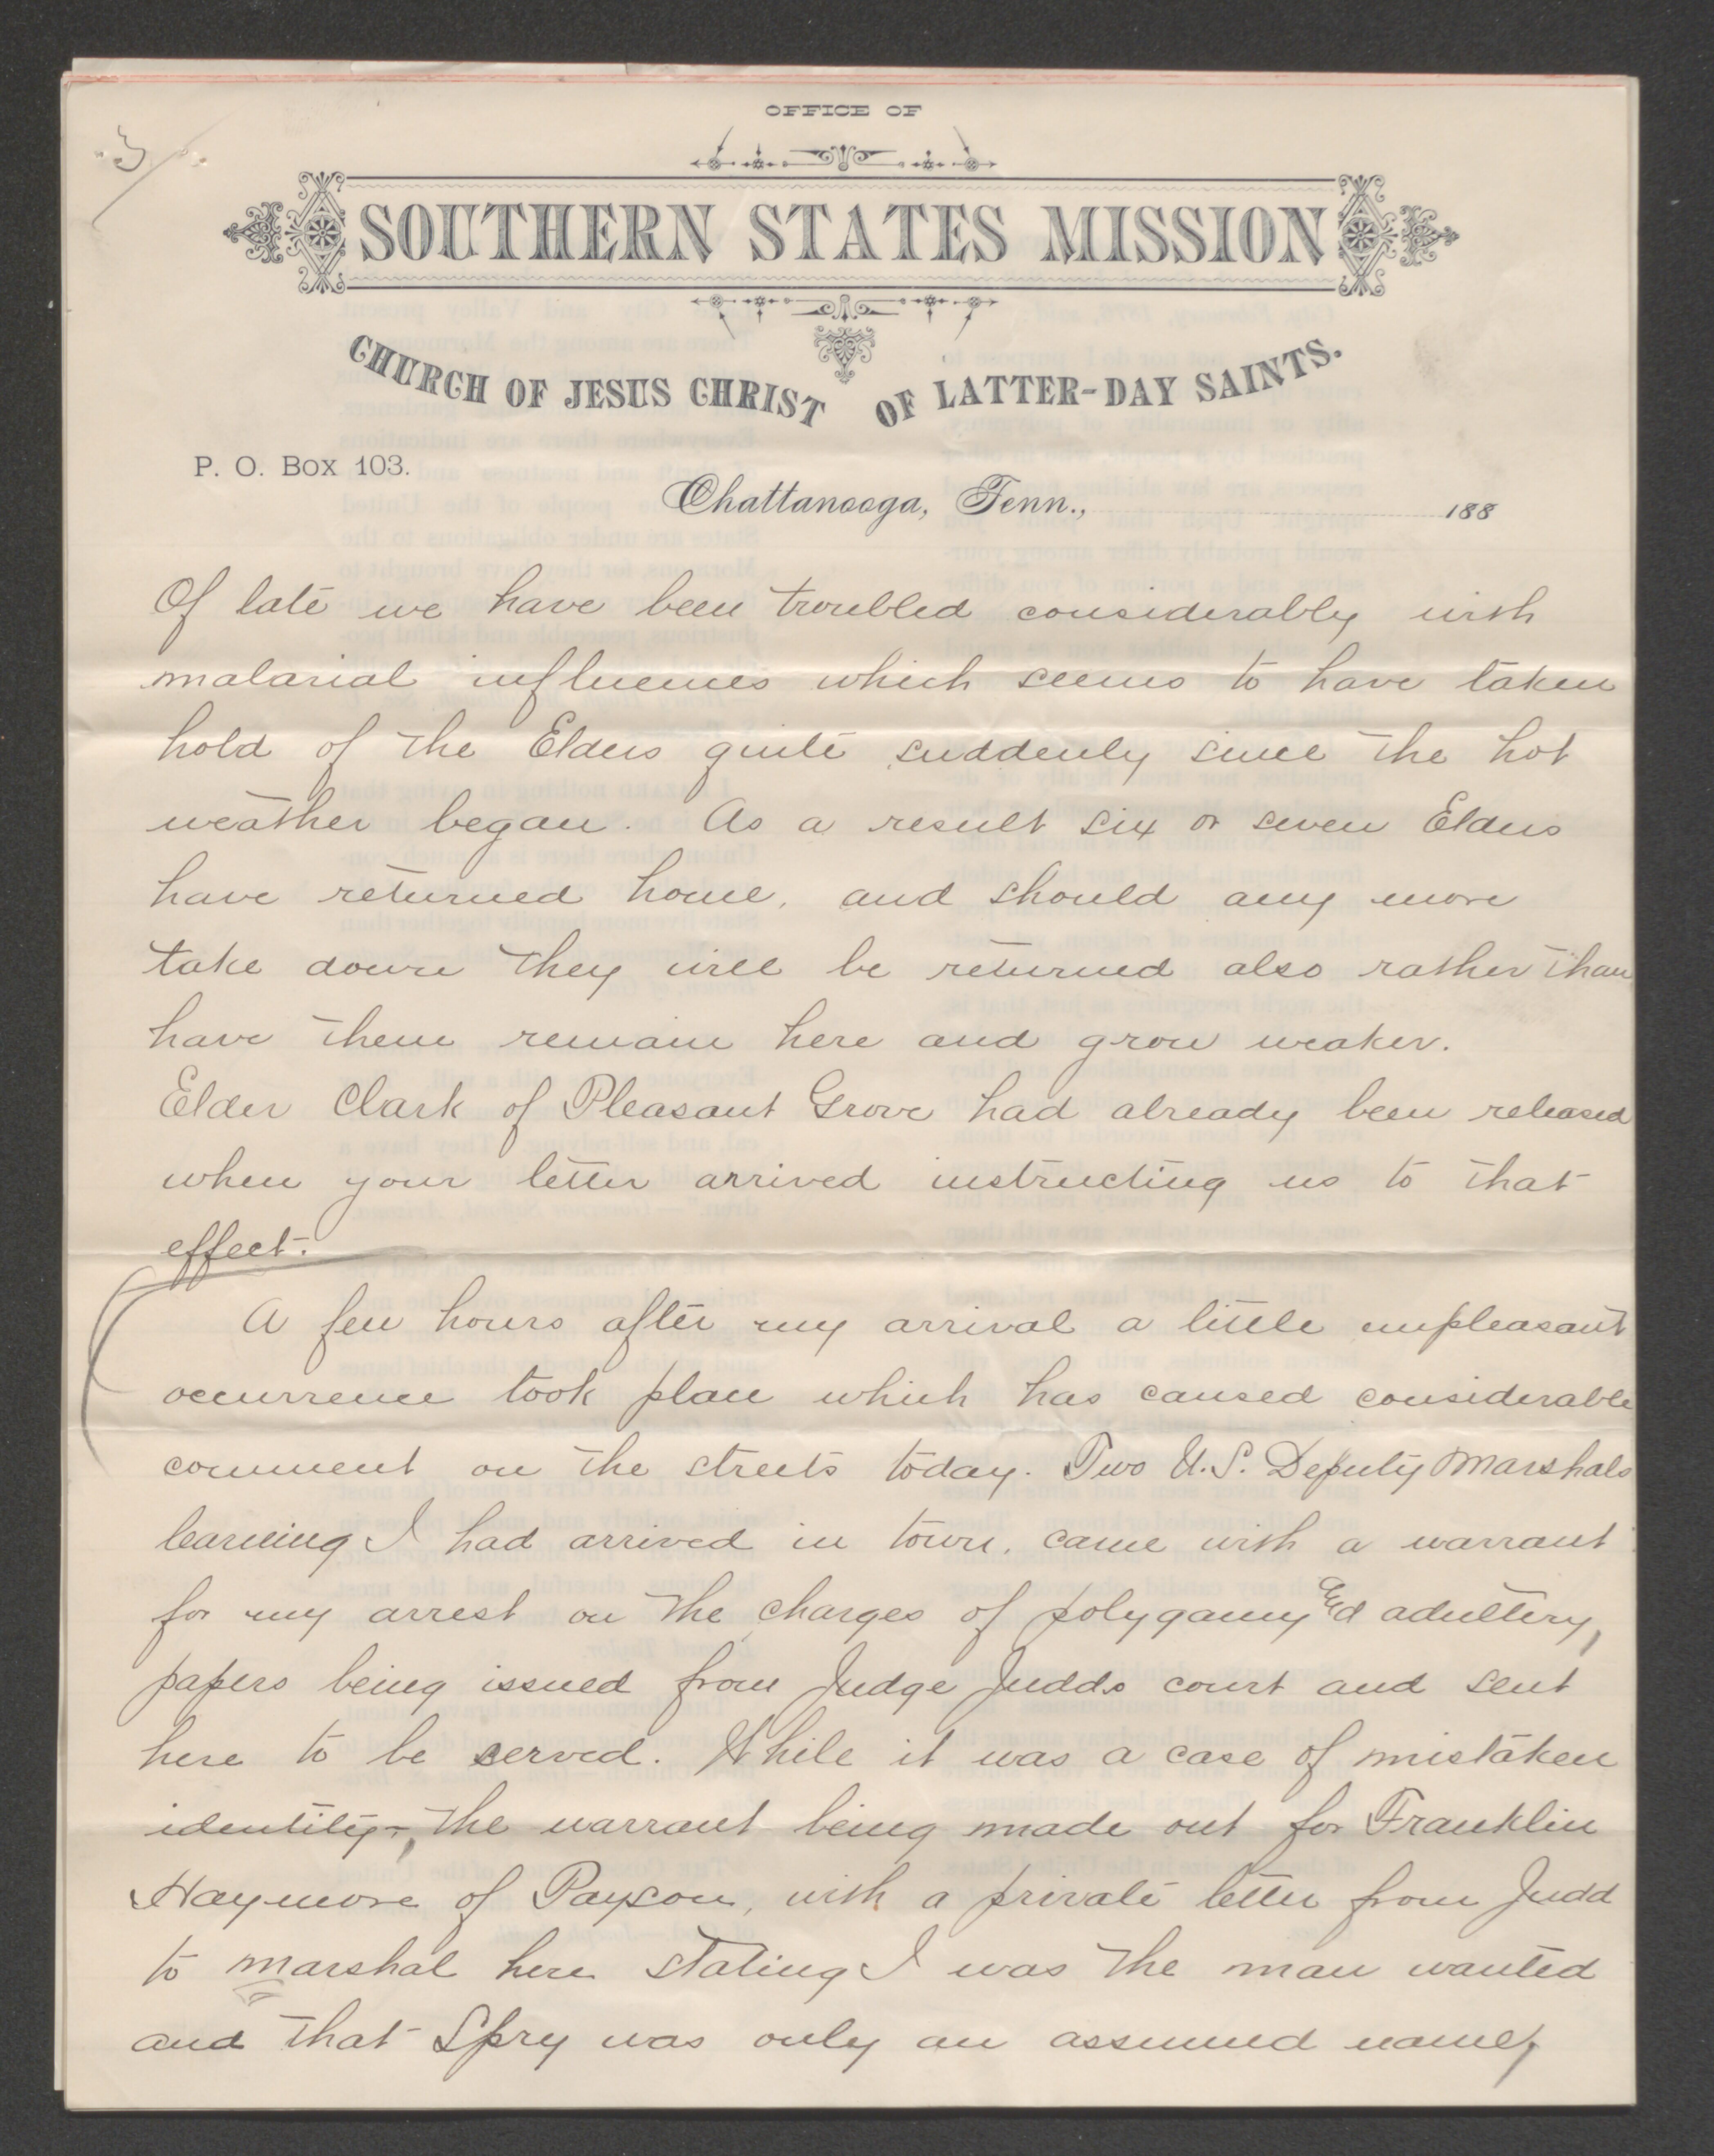 3
OFFICE OF
SOUTHERN STATES MISSION
CHURCH OF JESUS CHRIST OF LATTER-DAY SAINTS.
P. O. Box 103.
Chattanooga, Tenn., 188
Of late we have been troubled considerably with
malarial influences which seems to have taken
hold of the Elders quite suddenly since the hot
weather began. As a result six or seven Elders
have returned home, and should any more
take down they will be returned also rather than
have them remain here and grow weaker.
Elder Clark of Pleasant Grove had already been released
when your letter arrived instructing us to that
effect.
A few hours after my arrival a little unpleasant
occurrence took place which has caused considerable
comment on the streets today. Two U.S. Deputy Marshals
learning I had arrived in town, came with a warrant
for my arrest on the charges of polygamy and adultery,
papers being issued from Judge Judds court and sent
here to be served. While it was a case of mistaken
identity, the warrant being made out for Franklin
Haymore of Payson, with a private letter from Judd
to Marshal here stating I was the man wanted
and that Spry was only an assumed name,